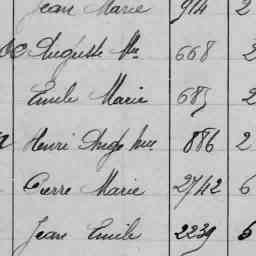 Jean Marie 914 2
Auguste Mie 668 2
Emile Marie 685 2
Henri Ange 886 2
Pierre Marie 2742 6
Jean Emile 2239 6